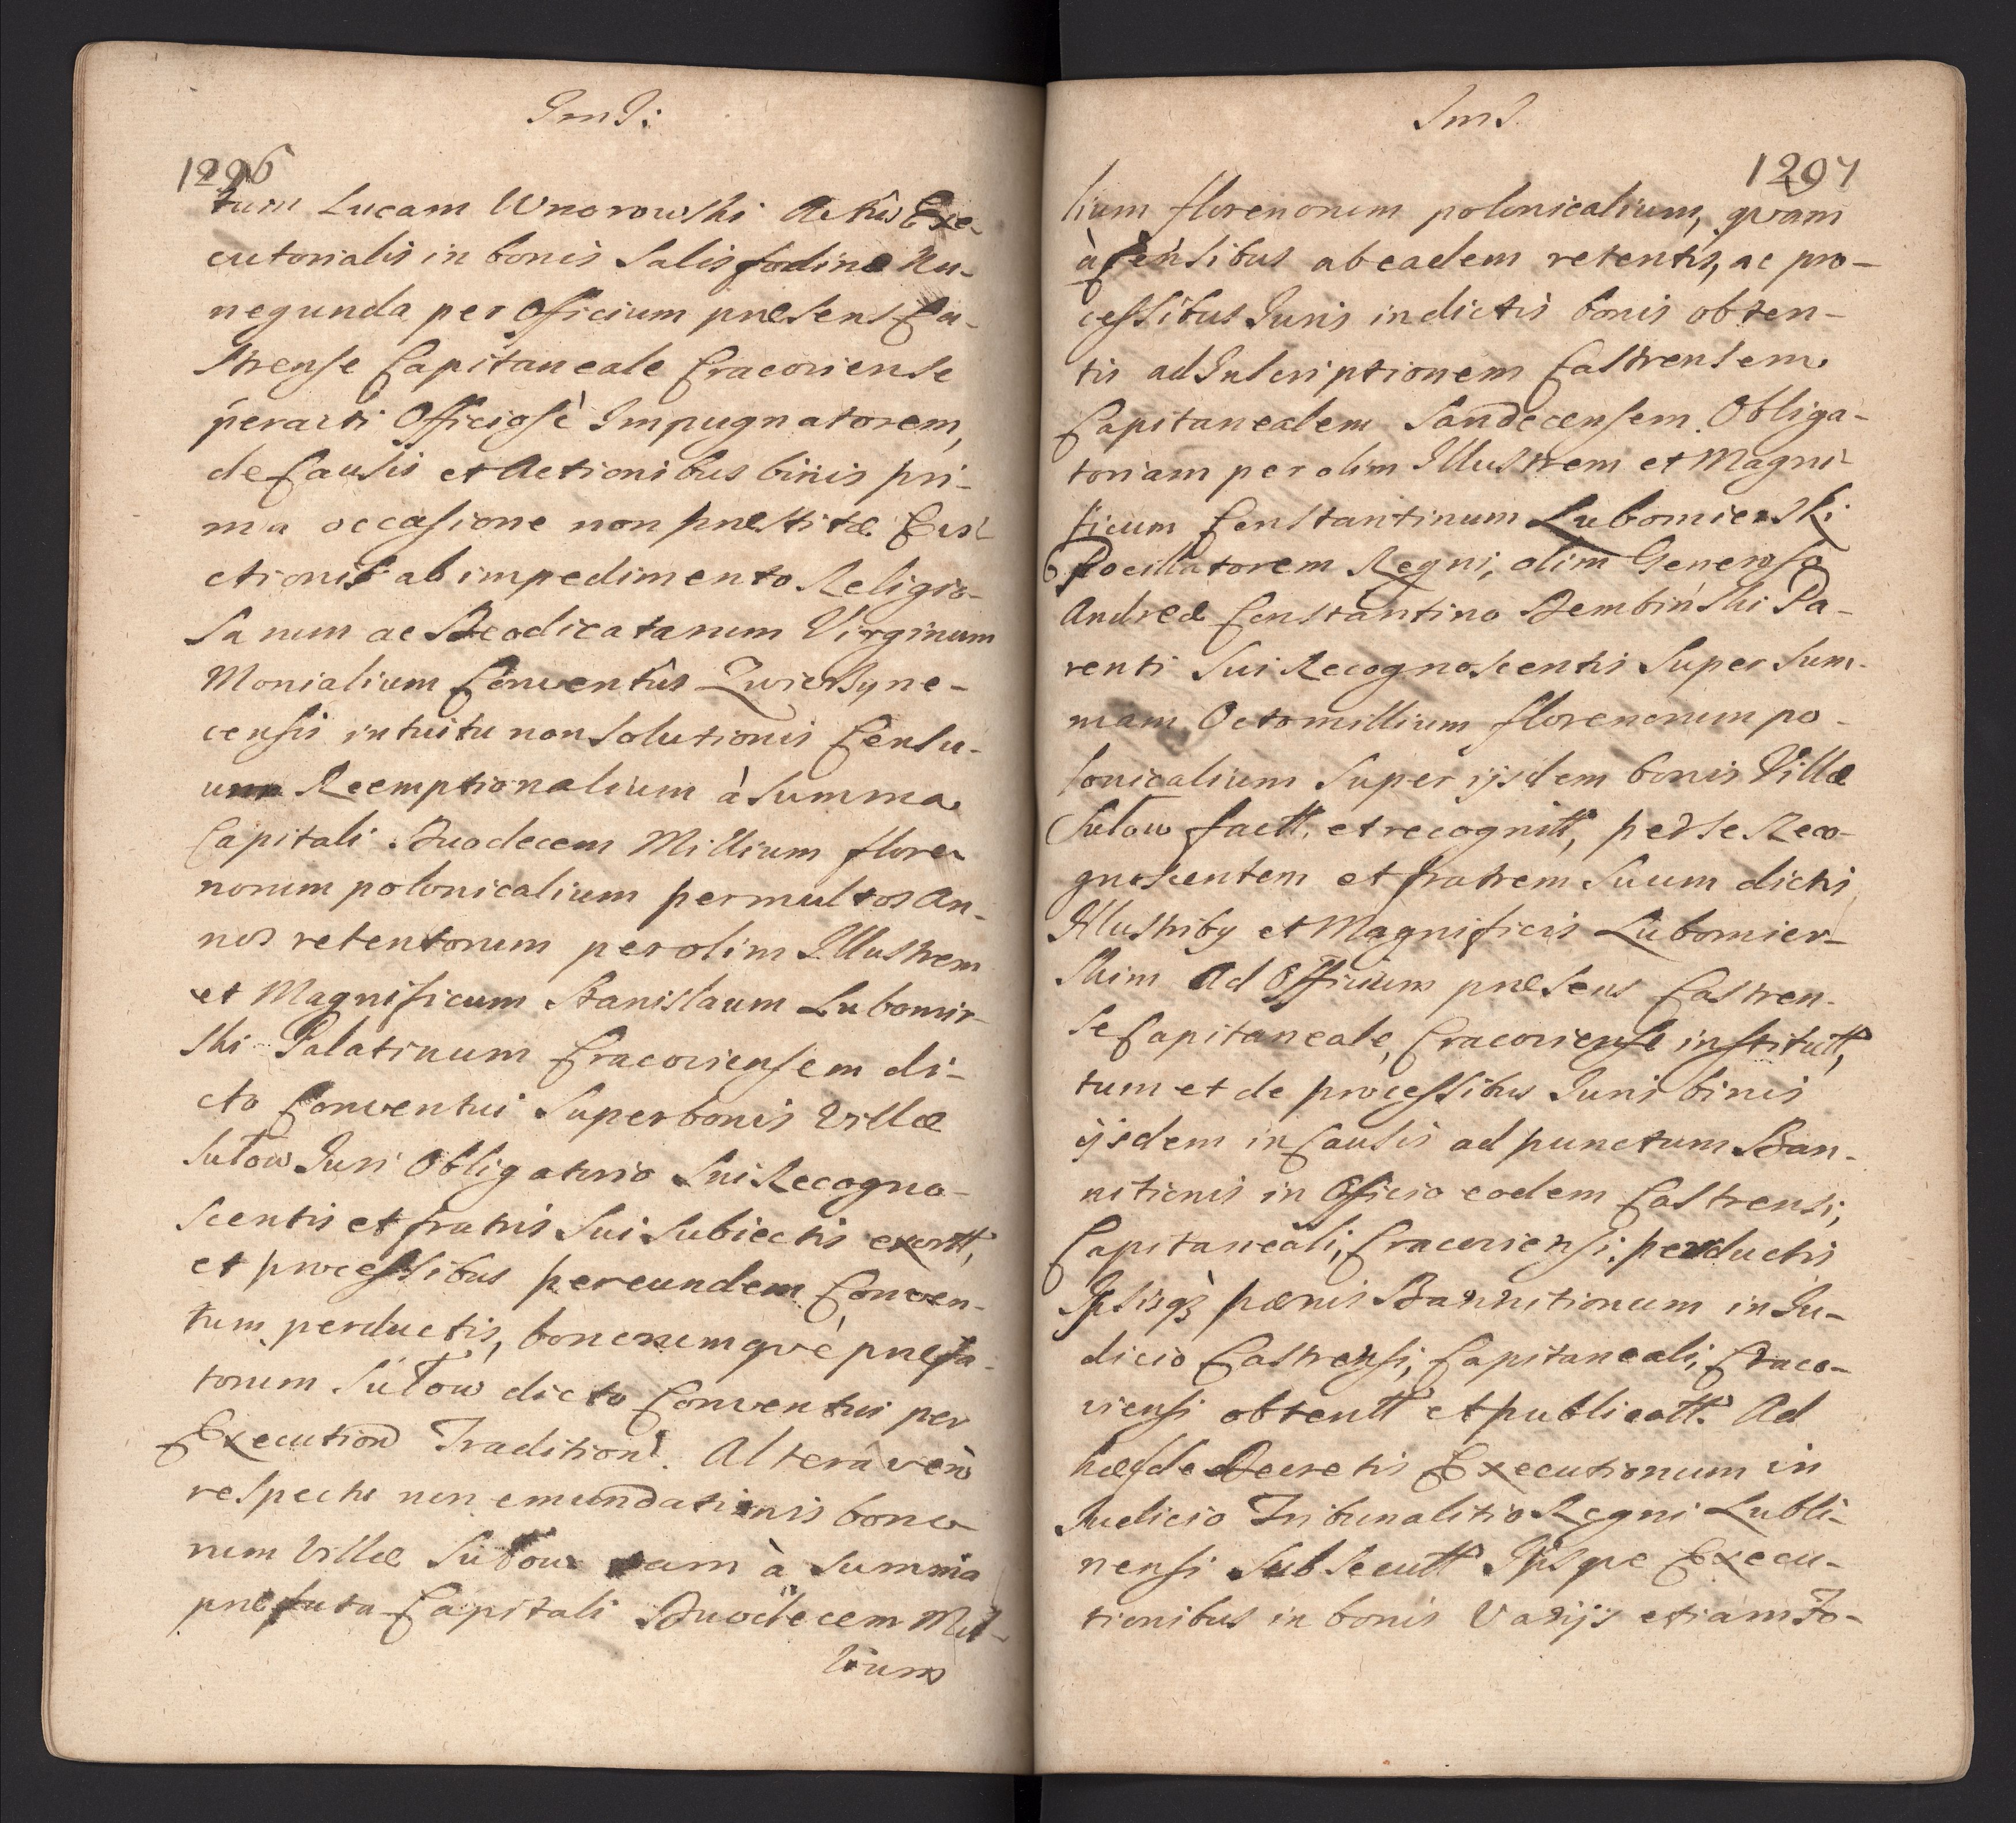 1296
tum Lucam Wnorowski Actûs Exe-
cutorialis in bonis Salisfodinæ Ku-
negunda per Officium præsens Ca-
strense Capitaneale Cracoviense
peracti Officiosè Impugnatorem,
de Causis et Actionibus binis pri-
ma occasione non præstitæ Evi-
ctionis ab impedimento Religio-
sarum ac Deodicatarum Virginum
Monialium Conventûs Zwierzyne-
censis intuitu non Solutionis Censu-
um Reemptionalium à Summa
Capitali Duodecem Millium flore-
norum polonicalium per multos An-
nos retentorum per olim Illustrem
et Magnificum Stanislaum Lubomir-
ski Palatinum Cracoviensem di-
cto Conventui Super bonis Villæ
Sułow Juri Obligatorio Sui Recogno-
scentis et fratris Sui Subiectis exortt,
et processibus per eundem Conven-
tum perductis, bonorumquè præfa-
torum Sułow dicto Conventui per
Execution Tradition. Altera verò
respectu non emundationis bono-
rum Villæ Sułow tam à Summa
præfata Capitali Duodecem Mil-
lium
1297
lium florenorum polonicalium, quam
à Censibus ab eadem retentis, ac pro-
cessibus Juris in dictis bonis obten-
tis ad Inscriptionem Castrensem
Capitanealem Sandecensem Obliga-
toriam per olim Illustrem et Magni-
ficum Constantinum Lubomierski
Pocillatorem Regni, olim Generoso
Andreæ Constantino Dembiński Pa-
renti Sui Recognoscentis Super Sum-
mam Octo millium florenorum po-
lonicalium Super ijsdem bonis Villæ
Sułow factt, et recognitt, per Se Reco-
gnoscentem et fratrem Suum dictis
Illustriby et Magnificis Lubomier-
skim Ad Officium præsens Castren-
se Capitaneale, Cracoviense institutt,
tum et de processibus Juris binis
ijsdem in Causis ad punctum Ban-
nitionis in Officio eodem Castrensi,
Capitaneali, Cracoviensi perductis
Ipsisq3 pænis Bannitionum in Ju-
dicio Castrensi, Capitaneali, Craco-
viensi obtentt et publicatt. Ad
hæc de Decretis Executionum in
Judicio Tribunalitio Regni Lubli-
nensi Subsecutt Ipsque Execu-
tionibus in bonis Varijs etiam Fo-